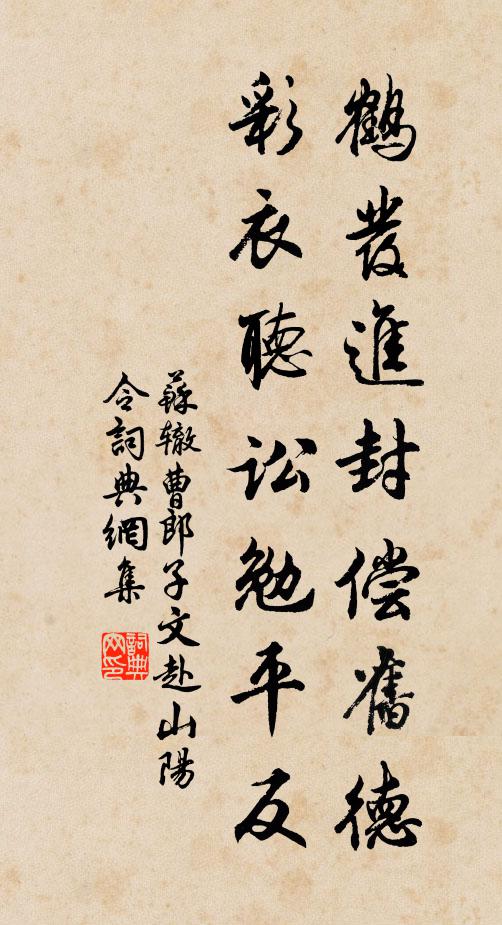 鶴發進封償舊德
彩衣聽訟勉平反
蘇轍曹郎子文赴山陽
令詞典網集
詞典網印